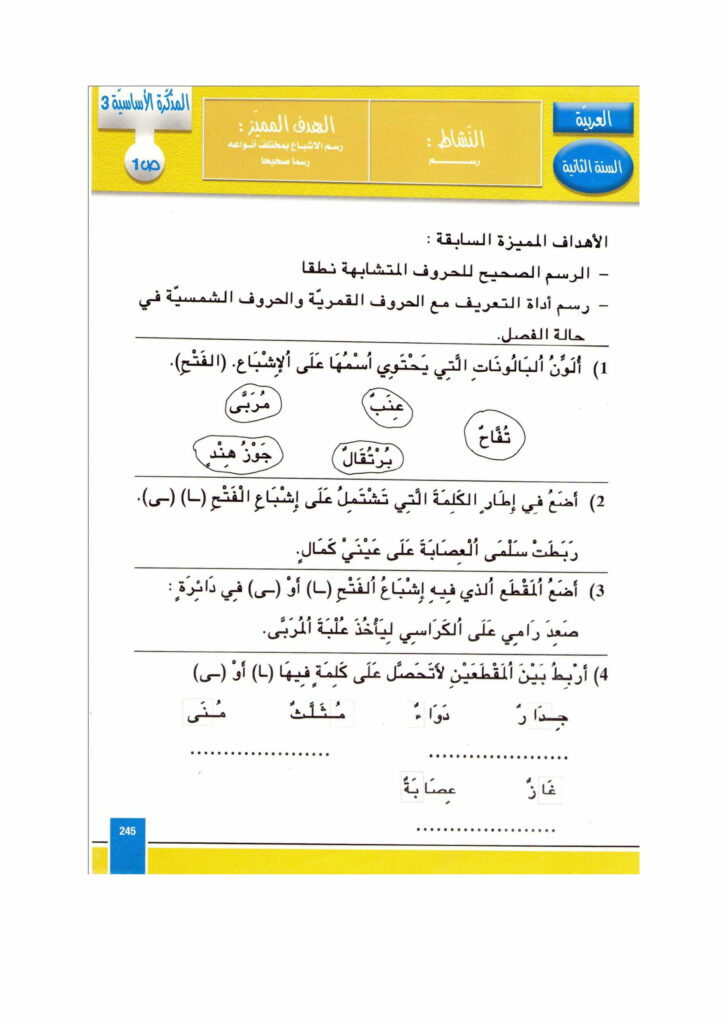 العربيّة
السنة الثانية
النّشاط :
رسم
الهدف المميّز :
رسم الاشباع بمختلف أنواعه
رسما صحيحا
المذكّرة الأساسيّة 3
ص 1
الأهداف المميزة السابقة :
– الرسم الصحيح للحروف المتشابهة نطقا
– رسم أداة التعريف مع الحروف القمريّة والحروف الشمسيّة في
حالة الفصل.
1) أُلَوِّنُ اُلبَالُونَاتِ الَّتِي يَحْتَوِي اُسْمُهَا عَلَى اُلإِشْبَاعِ. (الفَتْحِ).
عِنَبٌ مُرَبَّى
تُفَّاحٌ
بُرْتُقَالٌ جَوْزُ هِنْدٍ
2) أضَعُ فِي إِطَارٍ الكَلِمَةَ الَّتِي تَشْتَمِلُ عَلَى إِشْبَاعِ الْفَتْحِ (ـا) (ـى).
رَبَطَتْ سَلْمَى اُلْعِصَابَةَ عَلَى عَيْنَيْ كَمَالٍ.
3) أضَعُ اُلمَقْطَع اُلذي فيهِ إِشْبَاعُ اُلفَتْحِ (ـا) أوْ (ـى) فِي دَائِرَةٍ :
صَعِدَ رَامِي عَلَى اُلكَرَاسي لِيَأْخُذَ عُلْبَةَ اُلمُرَبَّى.
4) أرْبِطُ بَيْنَ اُلمَقْطَعَيْنِ لأَتَحَصَّل عَلَى كَلِمَةٍ فِيهَا (ـا) أوْ (ـى)
جِـدَا رٌ دَوَا ءٌ مُـثَـلَّـثٌ مُـنَى
غَا زٌ عِصَا بَةٌ
245